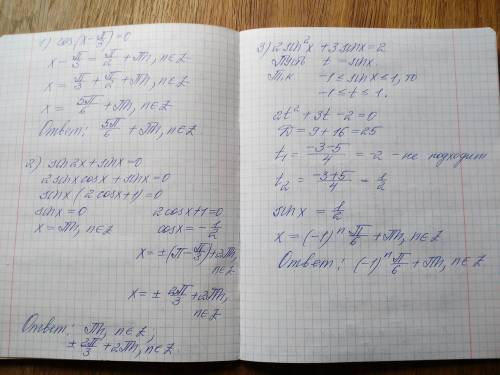 1) cos(x - π/3) = 0
x - π/3 = π/2 + πn, n∈Z
x = π/3 + π/2 + πn, n∈Z
x = 5π/6 + πn, n∈Z
Ответ: 5π/6 + πn, n∈Z
2) sin2x + sinx = 0
2sinxcosx + sinx = 0
sinx(2cosx + 1) = 0
sinx = 0 2cosx + 1 = 0
x = πn, n∈Z cosx = -1/2
x = ±(π - π/3) + 2πn, n∈Z
x = ± 2π/3 + 2πn, n∈Z
Ответ: πn, n∈Z;
± 2π/3 + 2πn, n∈Z.
3) 2sin²x + 3sinx = 2
Пусть t = sinx.
Т.к -1 ≤ sinx ≤ 1, то
-1 ≤ t ≤ 1.
2t² + 3t - 2 = 0
D = 9 + 16 = 25
t₁ = (-3-5)/4 = -2 - не подходит
t₂ = (-3+5)/4 = 1/2
sinx = 1/2
x = (-1)ⁿ π/6 + πn, n∈Z
Ответ: (-1)ⁿ π/6 + πn, n∈Z